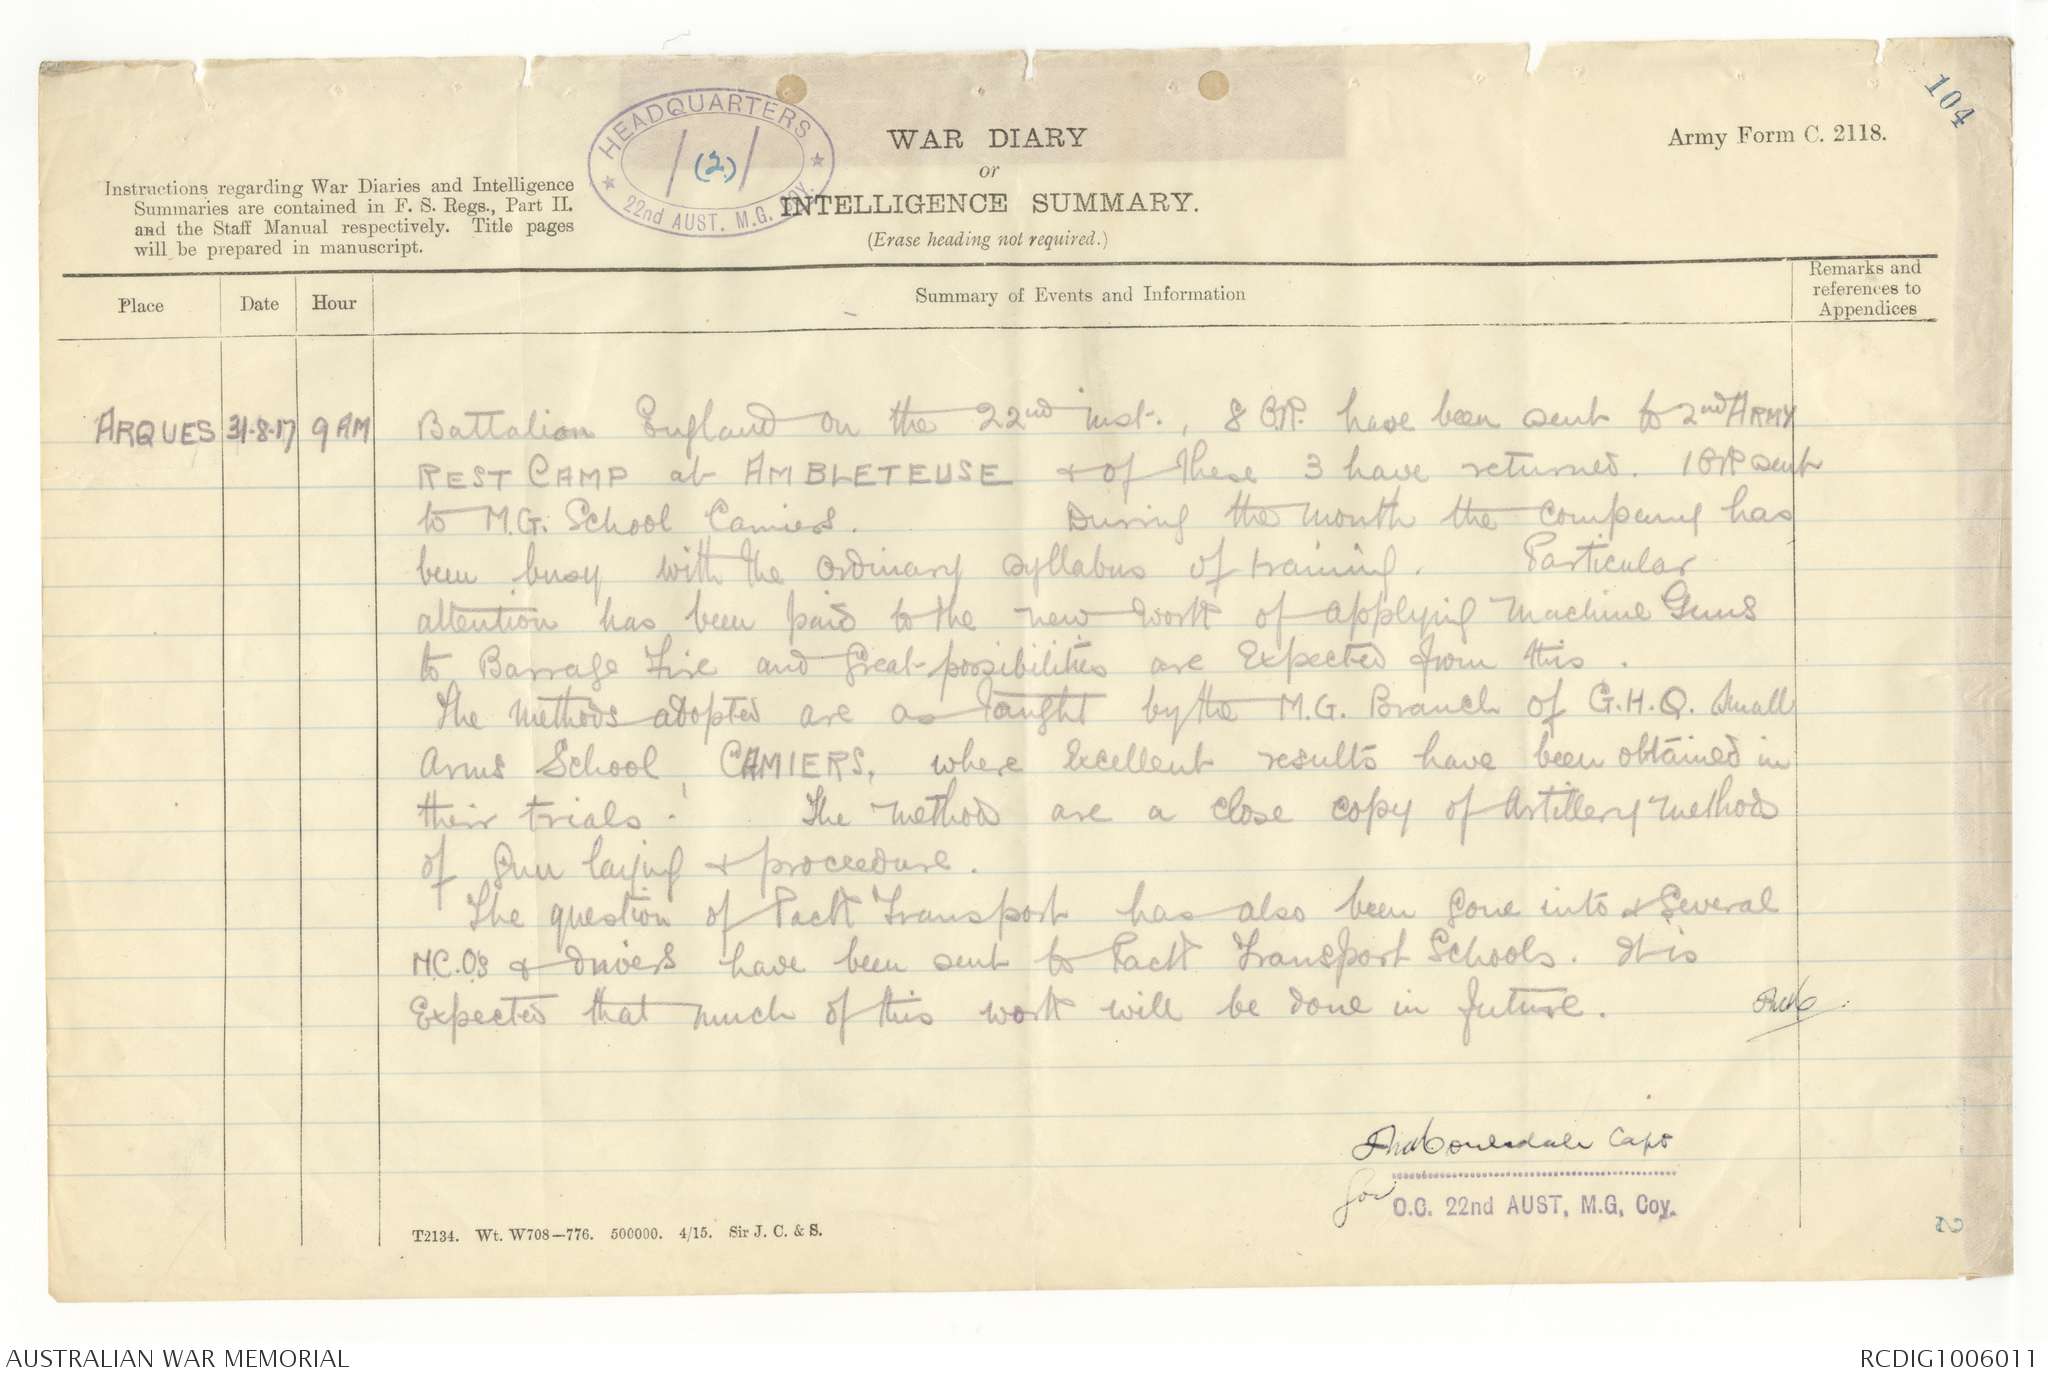 104
HEADQUARTERS
(2)
22nd AUST. M.G. Coy.
WAR DIARY
or
INTELLIGENCE SUMMARY.
(Erase heading not required.)
Army Form C. 2118.
Instructions regarding War Diaries and Intelligence
Summaries are contained in F. S. Regs., Part II.
and the Staff Manual respectively. Title pages
will be prepared in manuscript.
Place Date Hour Summary of Events and Information Remarks and references to Appendices
ARQUES 31-8-17 9 AM Battalion England on the 22nd inst., 8 O.R. have been sent to 2nd ARMY
REST CAMP at AMBLETEUSE & of these 3 have returned. 1 OR sent
to M.G. School Camiers. During the month the company has
been busy with the ordinary syllabus of training. Particular
attention has been paid to the new work of applying Machine Guns
to Barrage Fire and great possibilities are Expected from this.
The methods adopted are as taught by the M.G. Branch of G.H.Q. Small
Arms School, CAMIERS, where Excellent results have been obtained in
their trials. The methods are a close copy of Artillery methods
of gun laying & proceedure.
The question of Pack Transport has also been gone into & Several
N.C.O's & drivers have been sent to Pack Transport Schools. It is
Expected that much of this work will be done in future.
Capt
for O.C. 22nd AUST. M.G. Coy.
T2134. Wt. W708—776. 500000. 4/15. Sir J. C. & S.
AUSTRALIAN WAR MEMORIAL
RCDIG1006011